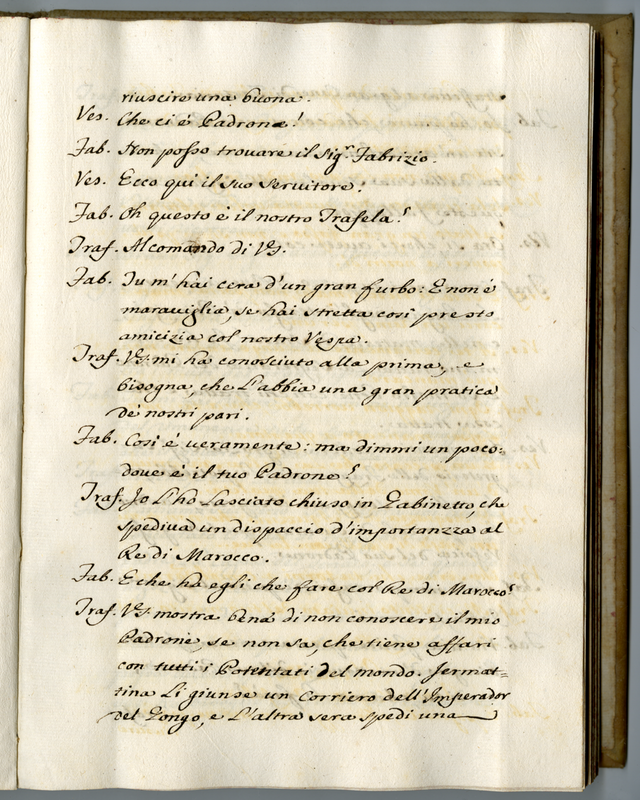 riuscire una buona.
Ves. Che ci é Padrone?
Fab. Non posso trouare il Sig.r Fabrizio.
Ves. Ecco qui il suo seruitore.
Fab. Oh questo é il nostro Trafela?
Traf. Al comando di VS.
Fab. Tu m'hai cera d'un gran furbo: E non é
marauiglia, se hai stretta cosi presto
amicizia col nostro Vespa.
Traf. VS. mi ha conosciuto alla prima, e
bisogna, che L'abbia una gran pratica
de nostri pari.
Fab. Cosi é ueramente: ma dimmi un poco:
doue é il tuo Padrone?
Traf. Io L'hò Lasciato chiuso in Gabinetto, che
spediua un dispaccio d'importanzza al
Re di Marocco.
Fab. E che ha egli che fare col Re di Marocco?
Traf. VS. mostra bene di non conoscere il mio
Padrone, se non sa, che tiene affari
con tutti i Potentati del mondo. Jermat=
tina Li giunse un Corriero dell'Imperador
del Congo, e L'altra sera spedi una